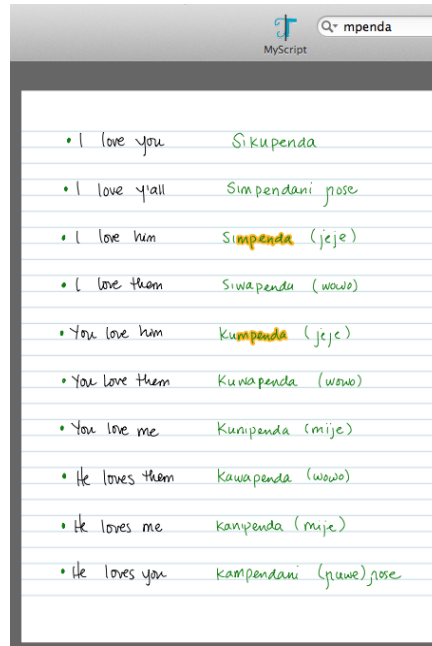 mpenda
MyScript
• I love you Sikupenda
• I love y'all Simpendani nose
• I love him Simpenda (jeje)
• I love them Siwapenda (wowo)
• You love him Kumpenda (jeje)
• You Love them Kuwapenda (wowo)
• You love me Kunipenda (mije)
• He loves them Kawapenda (wowo)
• He loves me kanipenda (mije)
• He loves you kampendani (nuwe) nose